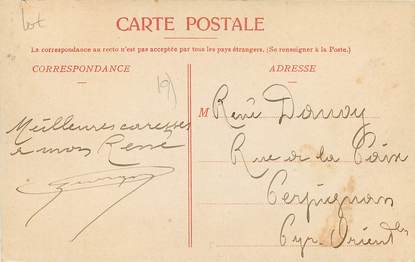 Lot
CARTE POSTALE
La correspondance au recto n'est pas acceptée par tous les pays étrangers. (Se renseigner à la Poste.)
CORRESPONDANCE
ADRESSE
Meilleures caresses
a mon René
M René Danoy
Rue de la Paix
Perpignan
Pyr. Orient les